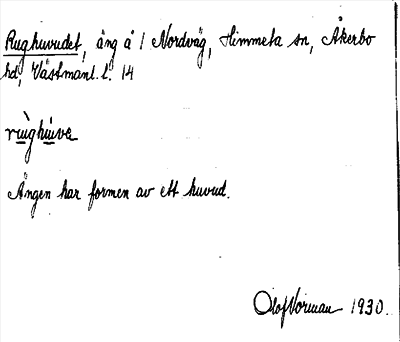 Rughuvudet, äng å 1 Nordväg, Himmeta sn, Åkerbo
hd, Västmanl. l. 14
rùghúve
Ängen har formen av ett huvud.
Olof Norman 1930.